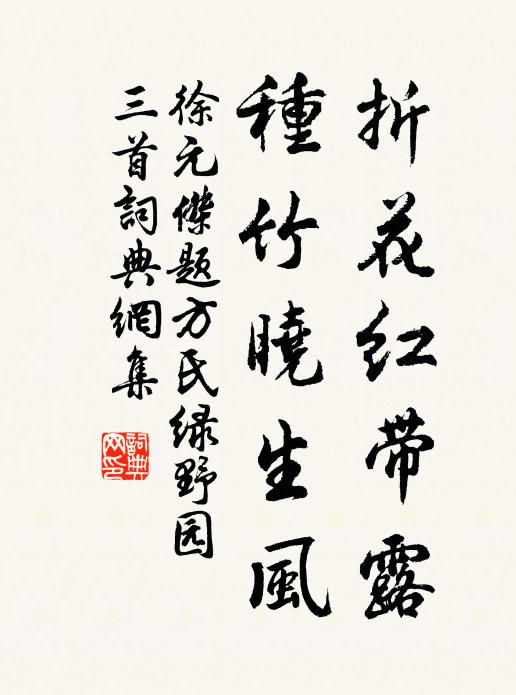 折花红带露
種竹曉生風
徐元傑题方氏绿野园
三首詞典網集
詞典网印